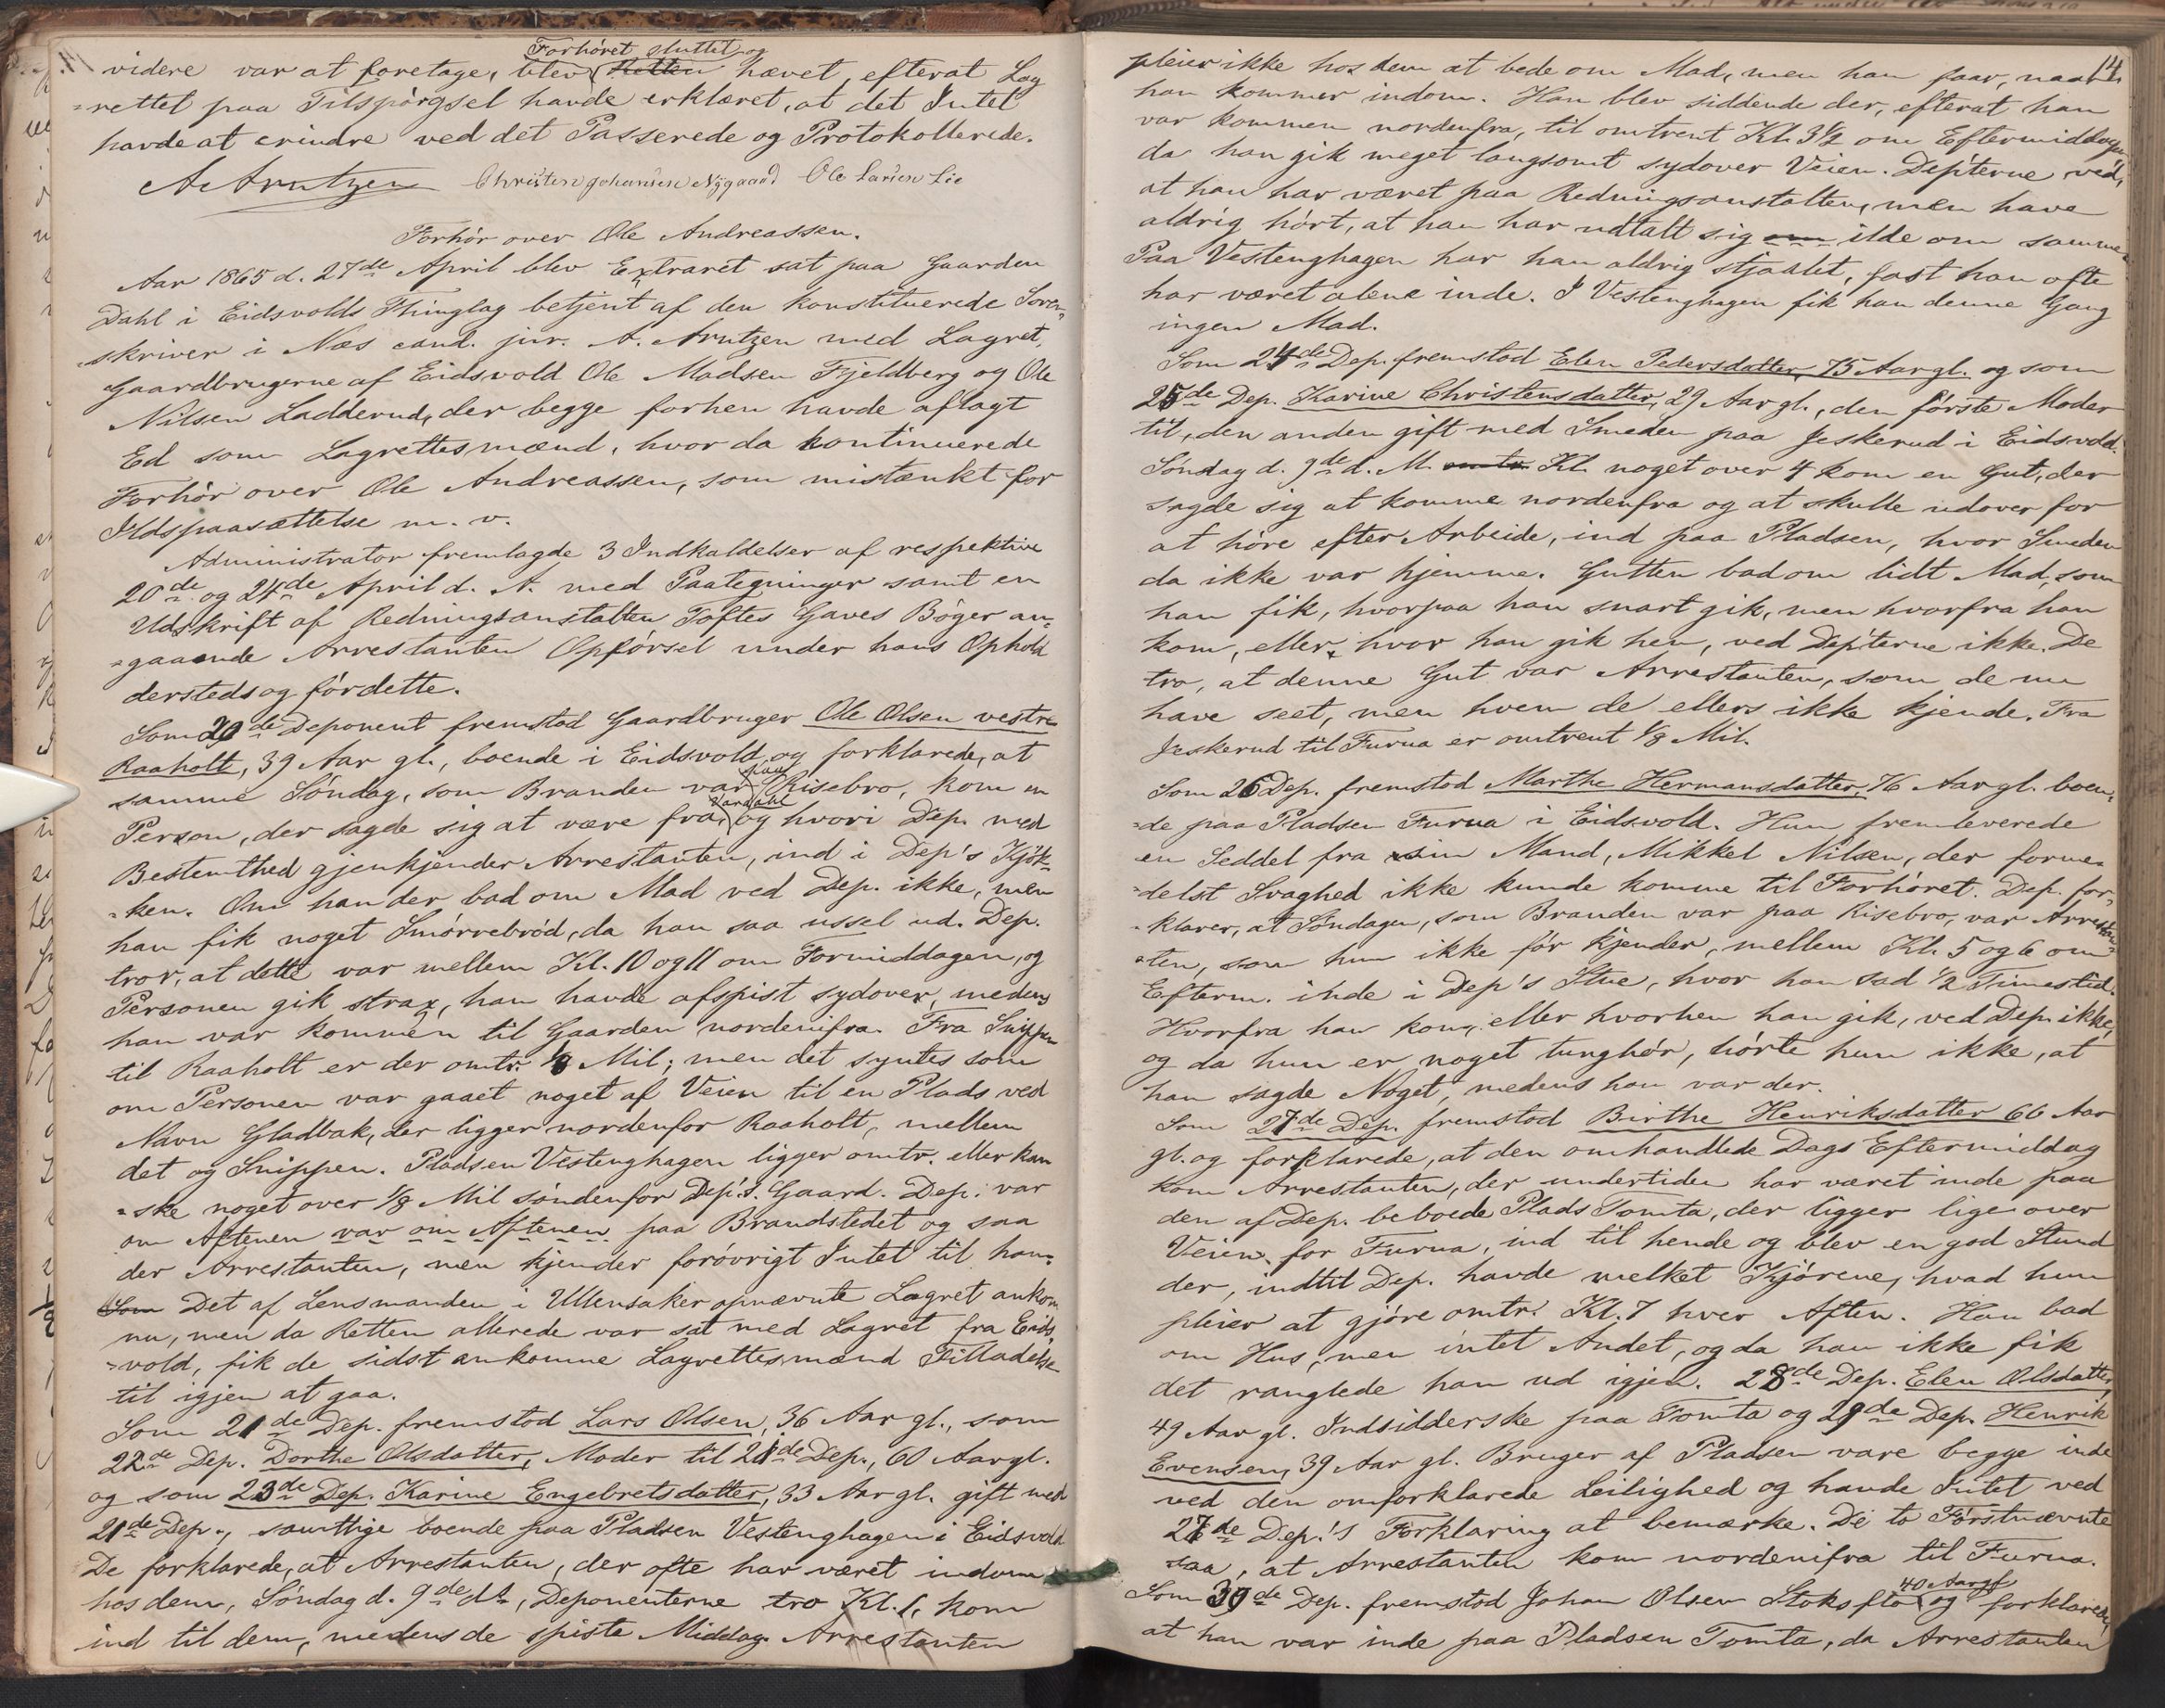 Forhöret sluttet og
videre var at foretage, blev Retten hævet, efterat Lag
=rettet paa Tilspörgsel havde erklæret, at det Intet
havde at erindre ved det Passerede og Protokollerede.
A. Arntzen Christen Johansen Nygaard Ole Larsen Lie
Forhör over Ole Andreassen.
Aar 1865 d. 27de April blev Extraret sat paa Gaarden
Dahl i Eidsvolds Thinglag betjent af den konstituerede Soren=
=skriver i Næs cand. jur. A. Arntzen med Lagret,
Gaardbrugerne af Eidsvold Ole Madsen Fjeldberg og Ole
Nilsen Ladderud, der begge forhen havde aflagt
Ed som Lagrettesmænd, hvor da kontinuerede
Forhör over Ole Andreassen, som mistænkt for
Ildspaasættelse m. v.
Administrator fremlagde 3 Indkaldelser af respektive
20de og 24de April d. A. med Paategninger samt en
Udskrift af Redningsanstalten Toftes Gaves Böger an=
=gaaende Arrestanten Opförsel under hans Ophold
dersteds og för dette.
Som 20de Deponent fremstod Gaardbruger Ole Olsen vestre
Raaholt, 39 Aar gl., boende i Eidsvold, og forklarede, at
samme Söndag, som Branden var paa Risebro, kom en
Person, der sagde sig at være fra Vardahl og hvori Dep. med
Bestemthed gjenkjender Arrestanten, ind i Dep's Kjök=
=ken. Om han der bad om Mad ved Dep. ikke, men
han fik noget Smörrebröd, da han saa ussel ud. Dep.
tror, at dette var mellem Kl. 10 og 11 om Formiddagen, og
Personen gik strax, han havde afspist sydover, medens
han var kommen til Gaarden nordenifra. Fra Snippen
til Raaholt er der omtr. 1/8 Mil; men det syntes som
om Personen var gaaet noget af Veien til en Plads ved
Navn Gladbak, der ligger nordenfor Raaholt, mellem
det og Snippen. Pladsen Vestenghagen ligger omtr. eller kan
=ske noget over 1/8 Mil söndenfor Dep's. Gaard. Dep. var
om Aftenen var om Aftenen paa Brandstedet og saa
der Arrestanten, men kjender forövrigt Intet til ham.
Som Det af Lensmanden i Ullensaker opnævnte Lagret ankom
nu, men da Retten allerede var sat med Lagret fra Eids
=vold, fik de sidst ankomne Lagrettesmænd Tilladelse
til igjen at gaa.
Som 21de Dep. fremstod Lars Olsen, 36 Aar gl., som
22de Dep. Dorthe Olsdatter, Moder til 21de Dep., 60 Aar gl.
og som 23de Dep. Karine Engebretsdatter, 33 Aar gl. gift med
21de Dep., samttige boende paa Pladsen Vestenghagen i Eidsvold.
De forklarede, at Arrestanten, der ofte har været indom
hos dem, Söndag d. 9de ds, Deponenterne tro Kl. 1, kom
ind til dem, medens de spiste Middag. Arrestanten
14.
pleier ikke hos dem at bede om Mad, men han faar, naar
han kommer indom. Han blev siddende der, efterat han
var kommen nordenfra, til omtrent Kl. 3 1/2 om Eftermiddagen
da han gik meget langsomt sydover Veien. Dep'terne ved,
at han har været paa Redningsanstalten, men have
aldrig hört, at han har udtalt sig om ilde om samme.
Paa Vestenghagen har han aldrig stjaalet, fast han ofte
har været alene inde. I Vestenghagen fik han denne Gang
ingen Mad.
Som 24de Dep. fremstod Elen Pedersdatter, 75 Aar gl. og som
25de Dep. Karine Christensdatter, 29 Aar gl., den förste Moder
til, den anden gift med Smeden paa Jeskerud i Eidsvold.
Söndag d. 9de d. M. omtr. Kl. noget over 4 kom en Gut, der
sagde sig at komme nordenfra og at skulle udover for
at höre efter Arbeide, ind paa Pladsen, hvor Smeden
da ikke var hjemme. Gutten bad om lidt Mad, som
han fik, hvorpaa han snart gik, men hvorfra han
kom, eller hvor han gik hen, ved Dep'terne ikke. De
tro, at denne Gut var Arrestanten, som de nu
have seet, men hvem de ellers ikke kjende. Fra
Jeskerud til Furua er omtrent 1/8 Mil.
Som 26 Dep. fremstod Marthe Hermansdatter, 76 Aar gl. boen=
=de paa Pladsen Furua i Eidsvold. Hun fremleverede
en Seddel fra sin Mand, Mikkel Nilsen, der forme=
=delst Svaghed ikke kunde komme til Forhöret. Dep. for=
=klarer, at Söndagen, som Branden var paa Risebro, var Arrestan=
=ten, som hun ikke för kjender, mellem Kl. 5 og 6 om
Efterm. inde i Dep's Stue, hvor han sad 1/2 Timestid.
Hvorfra han kom, eller hvorhen han gik, ved Dep. ikke,
og da hun er noget tunghör, hörte hun ikke, at
han sagde Noget, medens han var der.
Som 27de Dep. fremstod Birthe Henriksdatter 66 Aar
gl. og forklarede, at den omhandlede Dags Eftermiddag
kom Arrestanten, der undertiden har været inde paa
den af Dep. beboede Plads Tomta, der ligger lige over
Veien for Furua, ind til hende og blev en god Stund
der, indtil Dep. havde melket Kjörene, hvad hun
pleier at gjöre omtr. Kl. 7 hver Aften. Han bad
om Hus, men intet Andet, og da han ikke fik
det ranglede han ud igjen. 28de Dep. Elen Olsdatter,
49 Aar gl. Indsidderske paa Tomta og 29de Dep. Henrik
Evensen, 39 Aar gl. Bruger af Pladsen vare begge inde
ved den omforklarede Leilighed og havde Intet ved
27de Dep.'s Forklaring at bemærke. De to Förstnævnte
saa, at Arrestanten kom nordenifra til Furua.
Som 30de Dep. fremstod Johan Olsen Stoksflo 40 Aar gl og forklarede,
at han var inde paa Pladsen Tomta, da Arrestanten